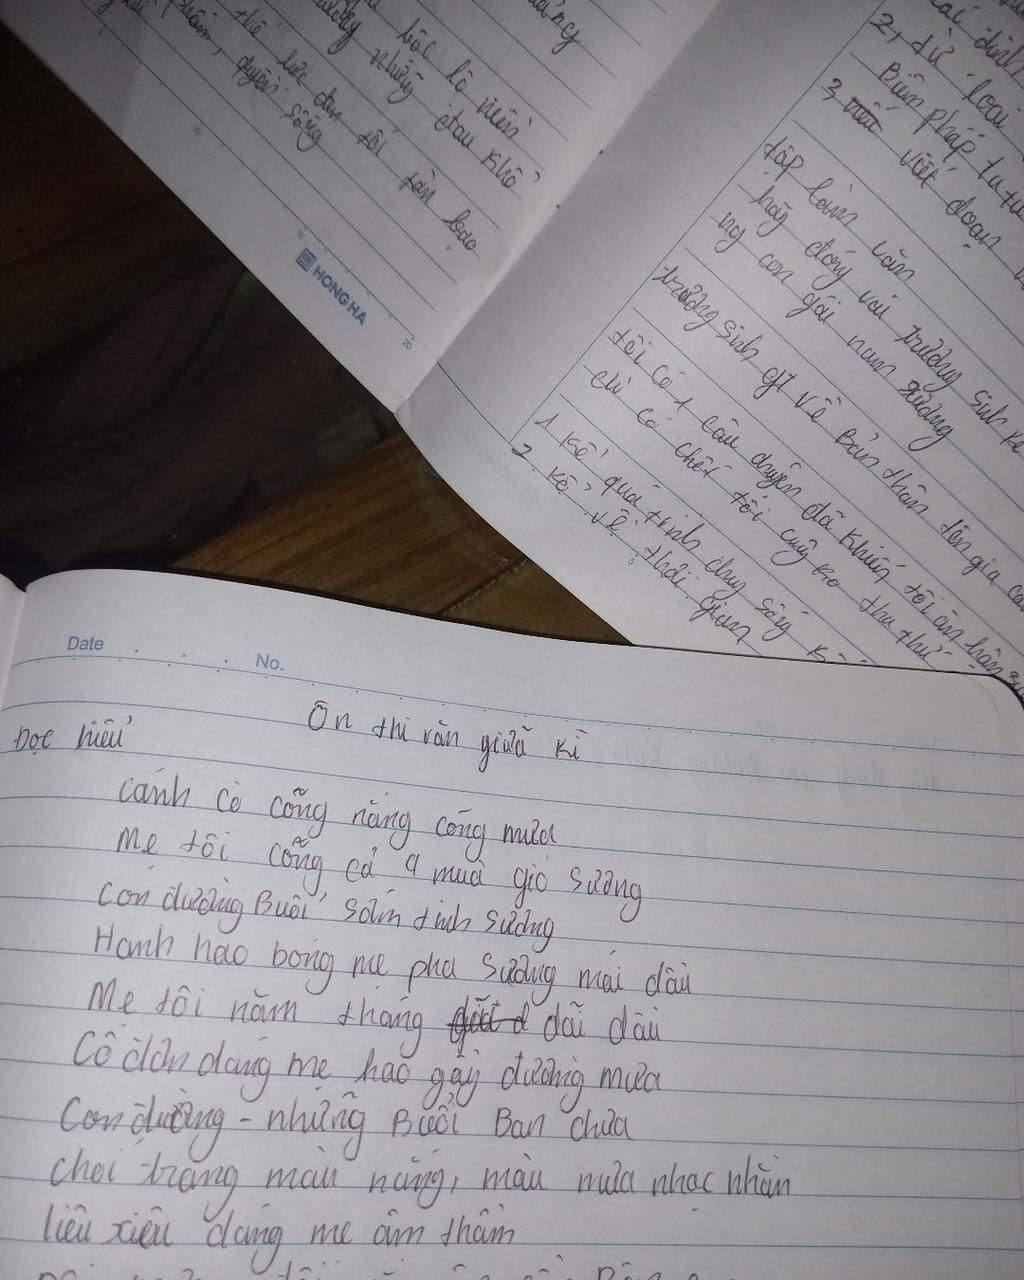 bộc lộ niềm
những đau khổ
thế lực đan tối tàn bạo
quyền sống
HONG HA
20
2, từ loại
Biện pháp tu từ
3, viết đoạn
tập làm văn
hãy đóng vai trương sinh kể
ng con gái nam xương
trương sinh gt về Bản thân tên gia
tôi có 1 câu chuyện đã khiến tôi ân hận
chỉ có chết tôi cũng ko tha thứ
1 Kể quá trình chung sống
2. Kể về thời gian
5
Date No.
Ôn thi văn giữa kì
Đọc hiểu
cánh cò cõng nắng cõng mưa
Mẹ tôi cõng cả 4 mùa gió sương
Con đường Buổi sớm tinh sương
Hanh hao bóng mẹ pha sương mái đầu
Mẹ tôi năm tháng dãi dầu
Cô đơn dáng mẹ hao gầy đường mưa
Con đường - những Buổi Ban chưa
chơi trạng màu nắng, màu mưa nhọc nhằn
liêu xiêu dáng mẹ âm thầm